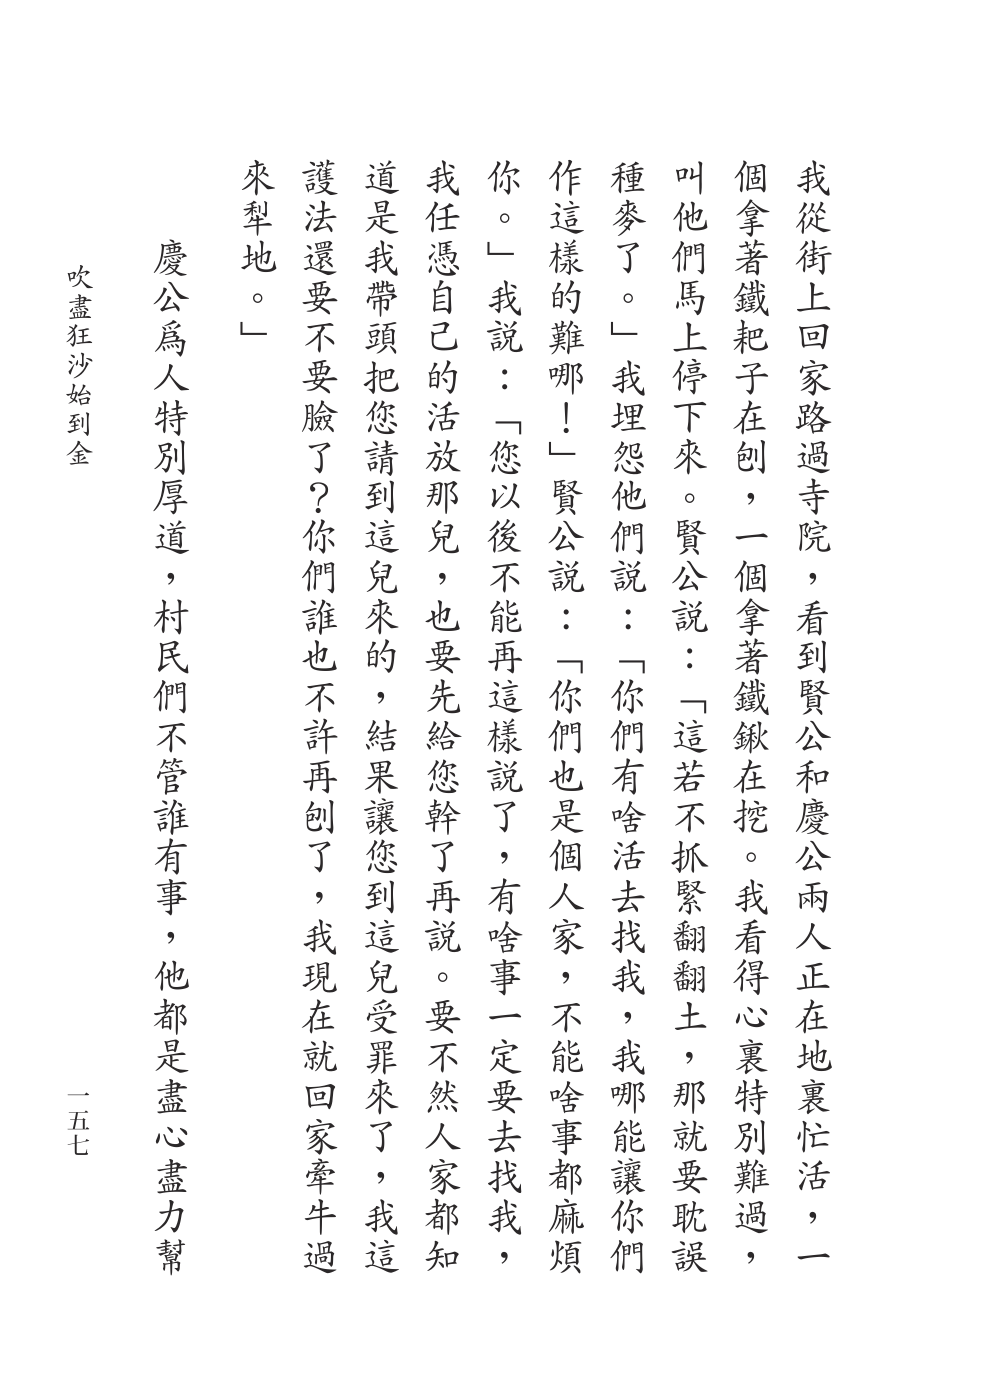 我從街上回家路過寺院，看到賢公和慶公兩人正在地裏忙活，一
個拿著鐵耙子在刨，一個拿著鐵鍬在挖。我看得心裏特別難過，
叫他們馬上停下來。賢公説：「這若不抓緊翻翻土，那就要耽誤
種麥了。」我埋怨他們説：「你們有啥活去找我，我哪能讓你們
作這樣的難哪！」賢公説：「你們也是個人家，不能啥事都麻煩
你。」我説：「您以後不能再這樣説了，有啥事一定要去找我，
我任憑自己的活放那兒，也要先給您幹了再説。要不然人家都知
道是我帶頭把您請到這兒來的，結果讓您到這兒受罪來了，我這
護法還要不要臉了？你們誰也不許再刨了，我現在就回家牽牛過
來犁地。」
慶公爲人特別厚道，村民們不管誰有事，他都是盡心盡力幫
吹盡狂沙始到金
一五七